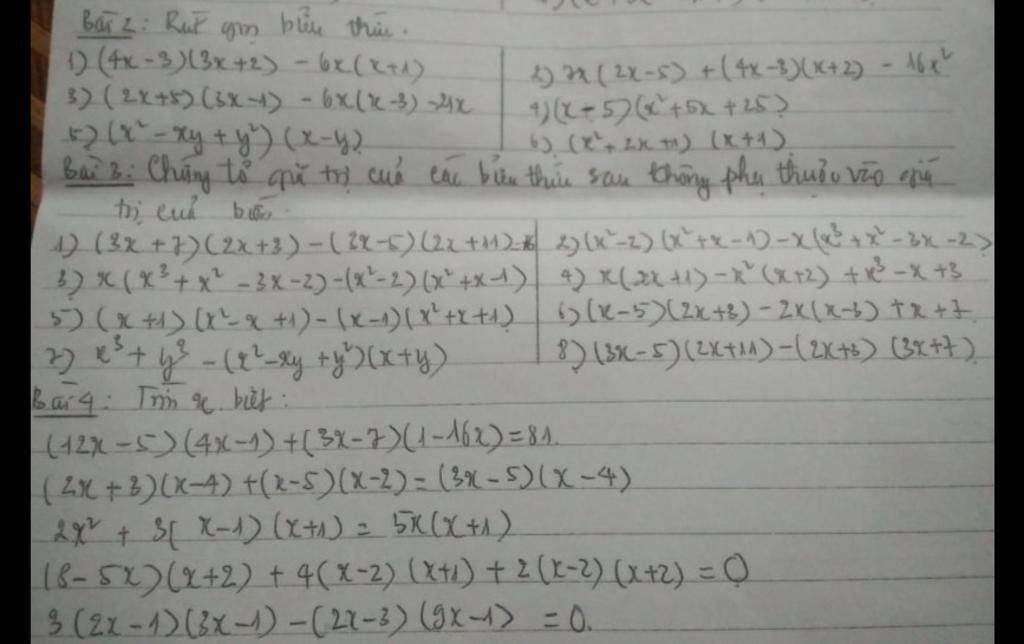 Bài 2: Rút gọn biểu thức.
1) (4x - 3)(3x + 2) - 6x(x + 1)
2) 7x(2x - 5) + (4x - 3)(x + 2) - 16x²
3) (2x + 5)(3x - 1) - 6x(x - 3) - 21x
4) (x - 5)(x² + 5x + 25)
5) (x² - xy + y²)(x - y)
6) (x² + 2x + 1)(x + 1)
Bài 3: Chứng tỏ giá trị của các biểu thức sau không phụ thuộc vào giá
trị của biến.
1) (3x + 7)(2x + 3) - (3x - 5)(2x + 11)
2) (x² - 2)(x² + x - 1) - x(x³ + x² - 3x - 2)
3) x(x³ + x² - 3x - 2) - (x² - 2)(x² + x - 1)
4) x(2x + 1) - x²(x + 2) + x³ - x + 3
5) (x + 1)(x² - x + 1) - (x - 1)(x² + x + 1)
6) (x - 5)(2x + 3) - 2x(x - 3) + x + 7.
7) x³ + y³ - (x² - xy + y²)(x + y)
8) (3x - 5)(2x + 11) - (2x + 3)(3x + 7)
Bài 4: Tìm x biết:
(12x - 5)(4x - 1) + (3x - 7)(1 - 16x) = 81.
(2x + 3)(x - 4) + (x - 5)(x - 2) = (3x - 5)(x - 4)
2x² + 3(x - 1)(x + 1) = 5x(x + 1)
(8 - 5x)(x + 2) + 4(x - 2)(x + 1) + 2(x - 2)(x + 2) = 0
3(2x - 1)(3x - 1) - (2x - 3)(9x - 1) = 0.